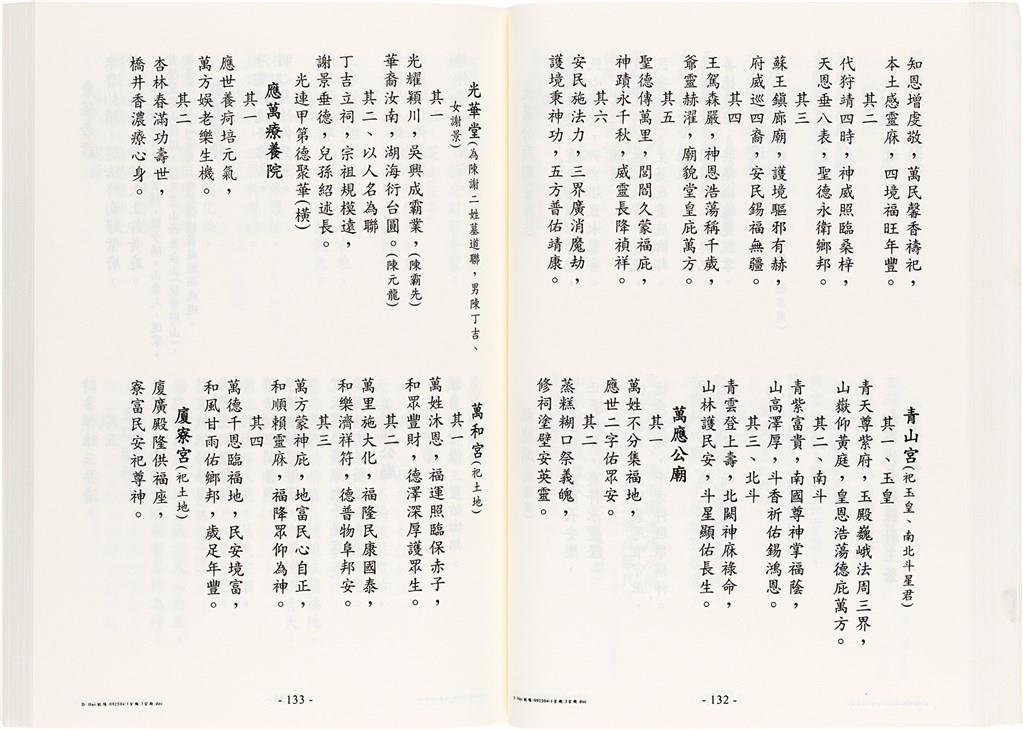 知恩增虔敬，萬民馨香禱祀，
本土感靈庥，四境福旺年豐。
其二
代狩靖四時，神威照臨桑梓，
天恩垂八表，聖德永衛鄉邦。
其三
蘇王鎮廊廟，護境驅邪有赫，
府威巡四裔，安民錫福無疆。
其四
王駕森嚴，神恩浩蕩稱千歲，
爺靈赫濯，廟貌堂皇庇萬方。
其五
聖德傳萬里，閭閻久蒙福庇，
神蹟永千秋，威靈長降禎祥。
其六
安民施法力，三界廣消魔劫，
護境秉神功，五方普佑靖康。
青山宮(祀玉皇、南北斗星君)
其一、玉皇
青天尊紫府，玉殿巍峨法周三界，
山嶽仰黃庭，皇恩浩蕩德庇萬方。
其二、南斗
青紫富貴，南國尊神掌福蔭，
山高澤厚，斗香祈佑錫鴻恩。
其三、北斗
青雲登上壽，北闕神庥祿命，
山林護民安，斗星顯佑長生。
萬應公廟
其一
萬姓不分集福地，
應世二字佑眾安。
其二
蒸糕糊口祭義魄，
修祠塗壁安英靈。
- 132 -
光華堂(為陳謝二姓墓道聯，男陳丁吉、
女謝景)
其一
光耀潁川，吳興成霸業，(陳霸先)
華裔汝南，湖海衍台圓。(陳元龍)
其二、以人名為聯
丁吉立祠，宗祖規模遠，
謝景垂德，兒孫紹述長。
光連甲第德聚華(橫)
應萬療養院
其一
應世養疴培元氣，
萬方娛老樂生機。
其二
杏林春滿功壽世，
橋井香濃療心身。
萬和宮(祀土地)
其一
萬姓沐恩，福運照臨保赤子，
和眾豐財，德澤深厚護眾生。
其二
萬里施大化，福隆民康國泰，
和樂濟祥符，德普物阜邦安。
其三
萬方蒙神庇，地富民心自正，
和順賴靈庥，福降眾仰為神。
其四
萬德千恩臨福地，民安境富，
和風甘雨佑鄉邦，歲足年豐。
廈寮宮(祀土地)
廈廣殿隆供福座，
寮富民安祀尊神。
- 133 -